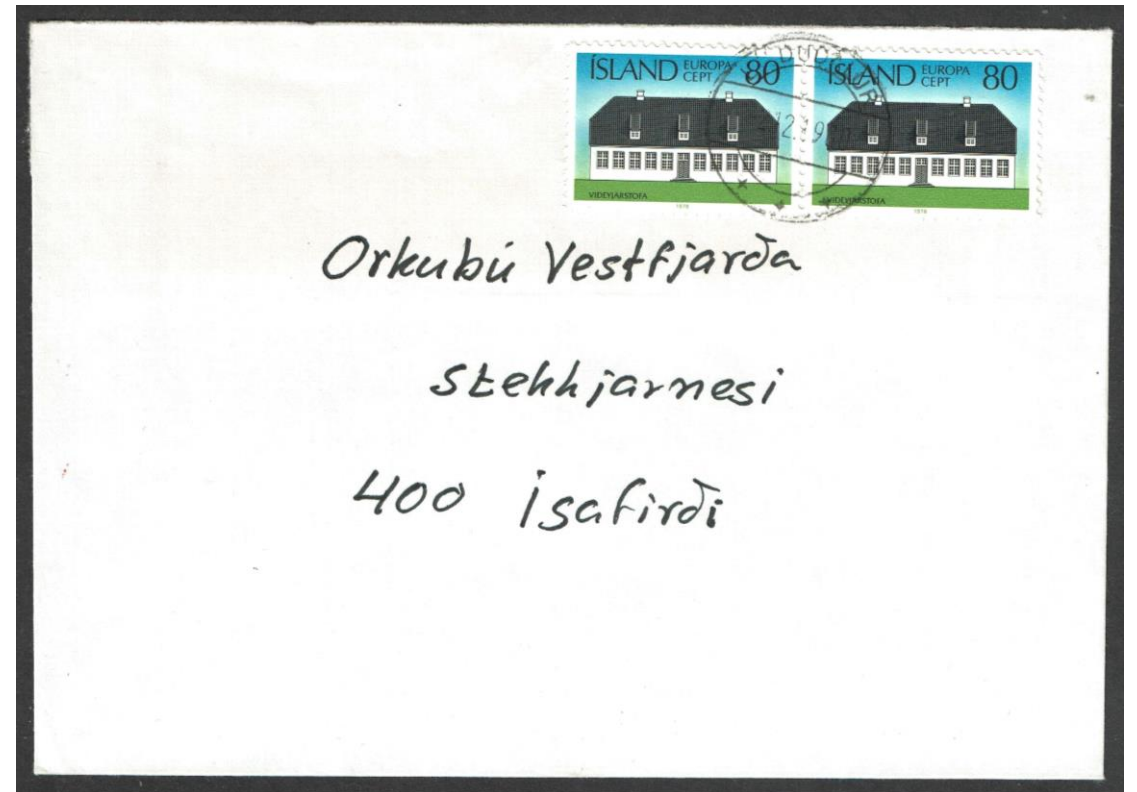 ÍSLAND EUROPA CEPT 80
VIDEYJARSTOFA
1978
ÍSLAND EUROPA CEPT 80
VIDEYJARSTOFA
1978
Orkubú Vestfjarða
Stekkjarnesi
400 Ísafirði